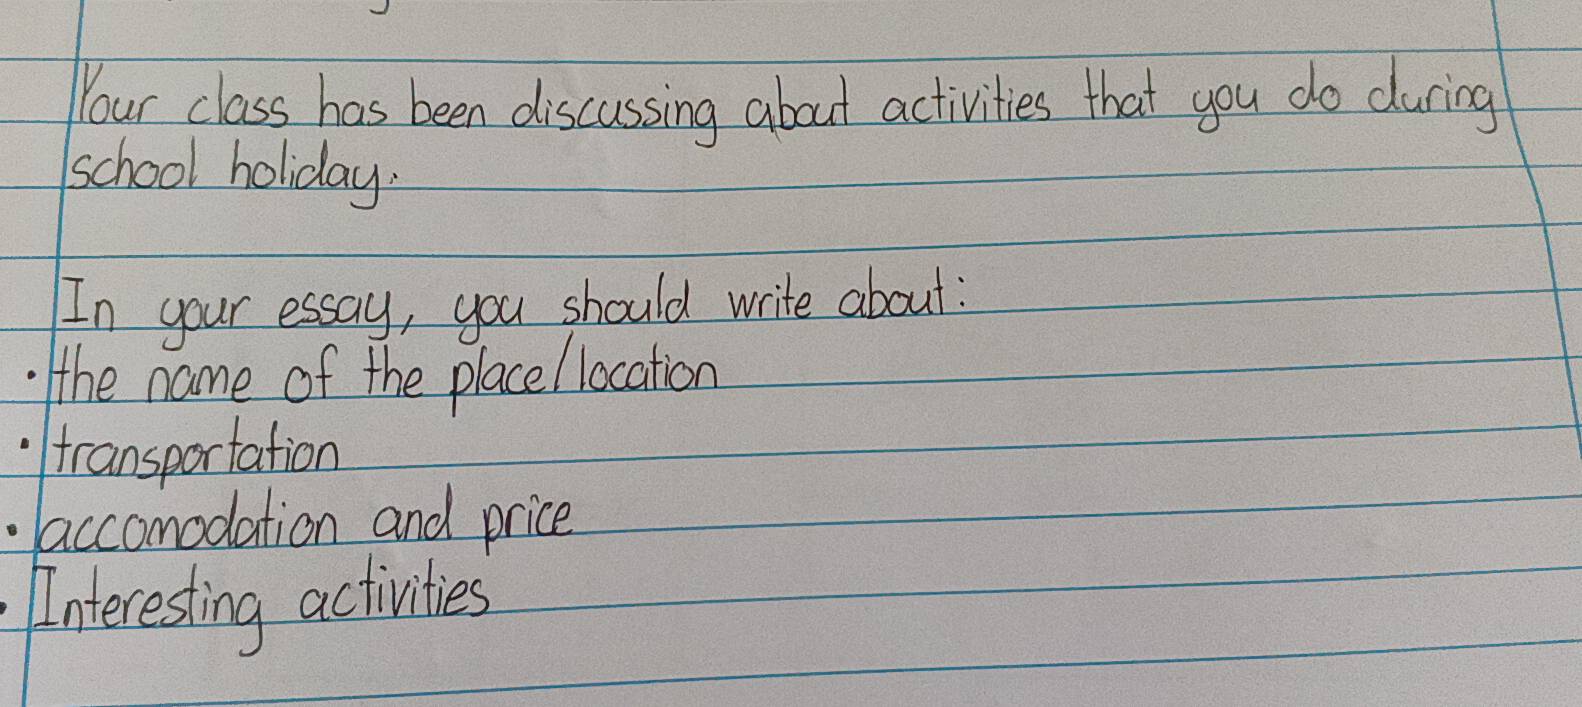 Your class has been discussing about activities that you do during
school holiday.
In your essay, you should write about:
• the name of the place/location
• transportation
• accomodation and price
• Interesting activities